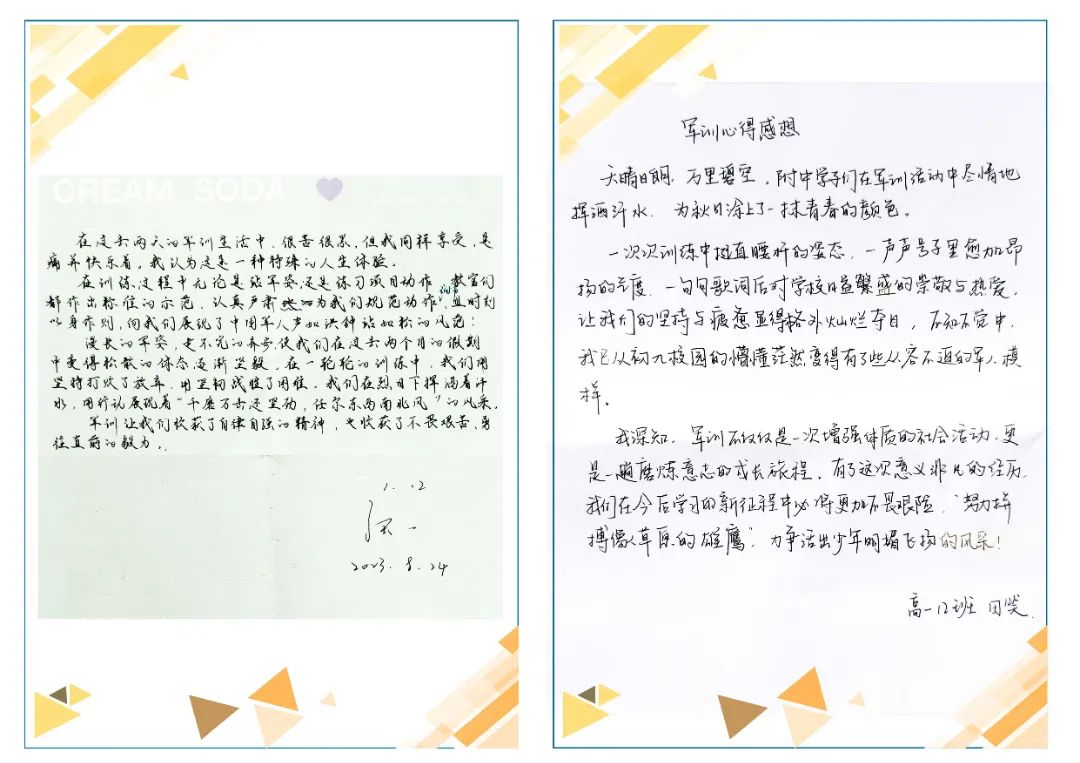 CREAM SODA
在过去两天的军训生活中,很苦很累,但我同样享受,是
痛并快乐着,我认为这是一种特殊的人生体验。
在训练过程中无论是站军姿还是练习项目动作,教官们
都作出标准的示范,认真严肃地为我们规范动作,且时刻
以身作则,向我们展现了中国军人声如洪钟站如松的风范!
漫长的军姿,走不完的齐步使我们在过去两个月的假期
中变得松散的体态逐渐坚毅,在一轮轮的训练中,我们用
坚持打败了放弃,用坚韧战胜了困难,我们在烈日下挥洒着汗
水,用行动展现着“千磨万击还坚劲,任尔东西南北风”的风采。
军训让我们收获了自律自强的精神,也收获了不畏艰苦、勇
往直前的毅力。
1.12
2023.8.24
军训心得感想
天晴日朗,万里碧空,附中学子们在军训活动中尽情地
挥洒汗水,为秋日涂上了一抹青春的颜色。
一次次训练中挺直腰杆的姿态,一声声号子里愈加昂
扬的态度,一句句歌词后对学校日益繁盛的崇敬与热爱,
让我们的坚持与疲惫显得格外灿烂夺目,不知不觉中,
我已从初九校园的懵懂茫然变得有了些从容不迫的军人模
样。
我深知,军训不仅仅是一次增强体质的社会活动,更
是一趟磨炼意志的成长旅程,有了这次意义非凡的经历,
我们在今后学习的新征程中必将更加不畏艰险,“努力拼
搏像草原的雄鹰”,力争活出少年明媚飞扬的风采!
高一12班 田笑